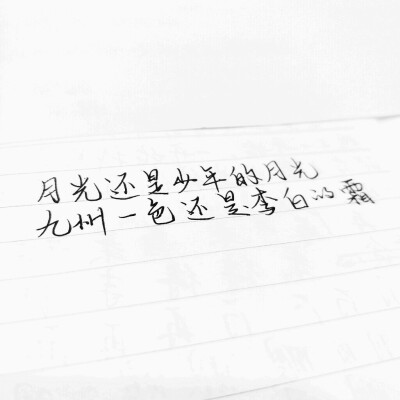 月光还是少年的月光
九州一色还是李白的霜